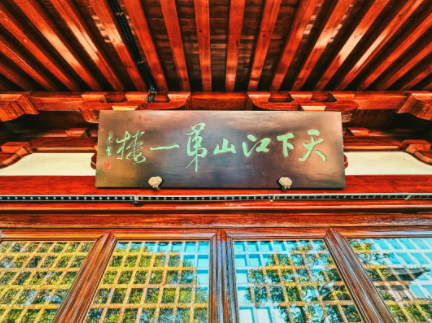 天下江山第一樓